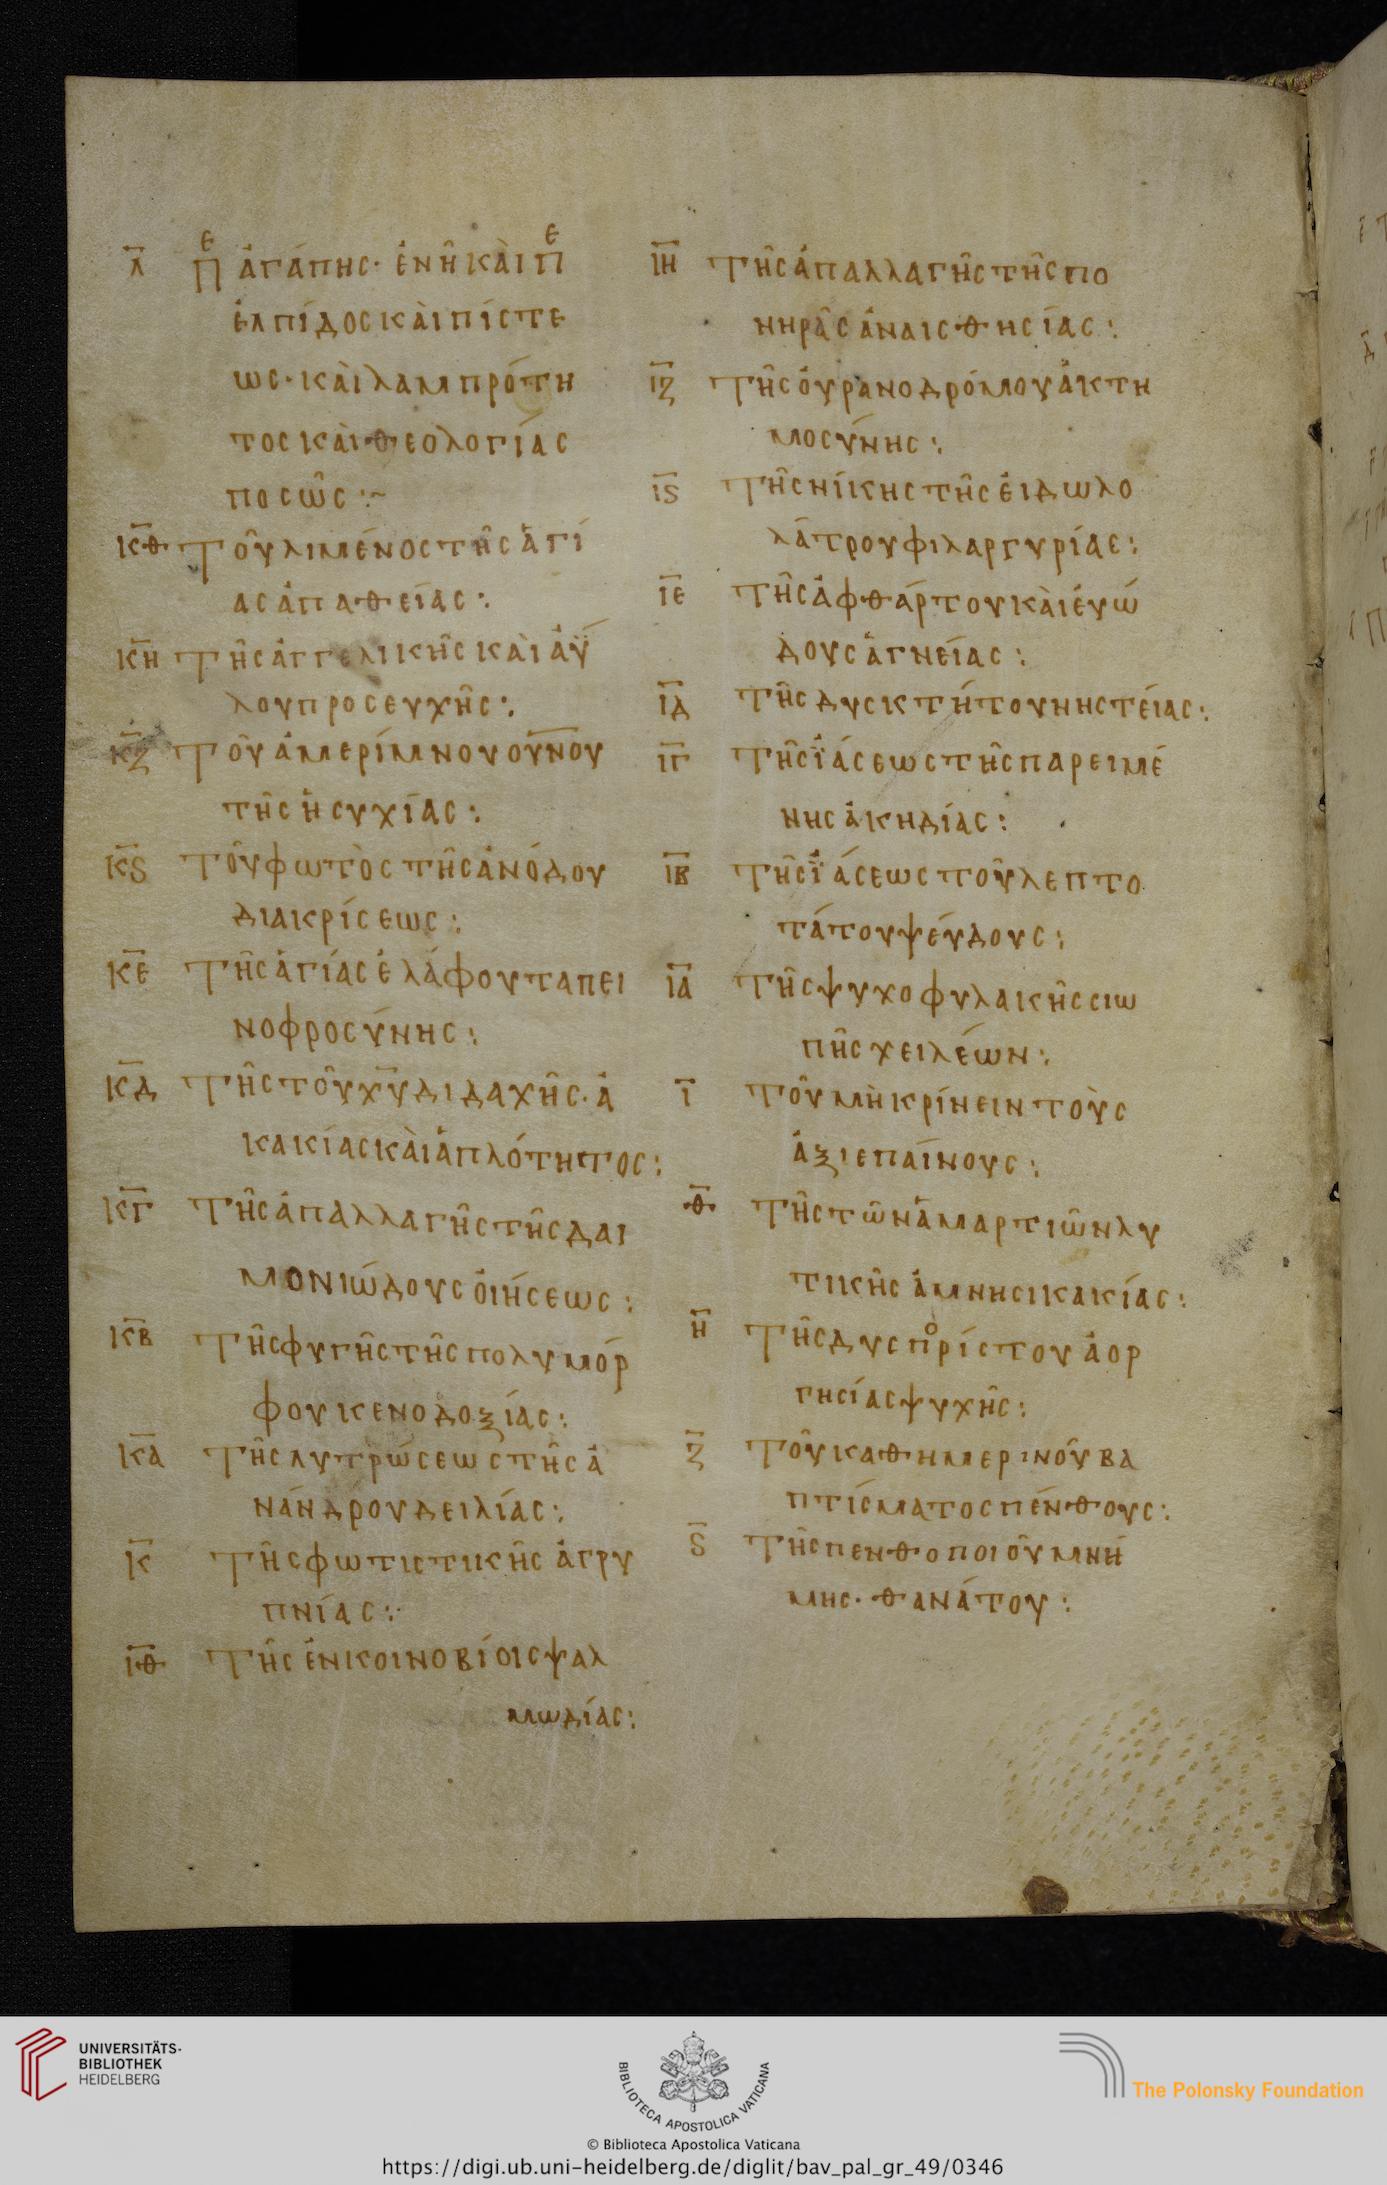 λ̅ πε ἀγάπης· ἐν ᾗ καὶ πε
ἐλπίδος καὶ πίστε
ως· καὶ λαμπρότη
τος καὶ θεολογίας
ποσῶς :~
κθ̅ Τοῦ λιμένος τῆς ἁγί
ας ἀπαθείας :
κη̅ Τῆς ἀγγελικῆς καὶ ἀΰ
λου προσευχῆς :
κζ̅ Τοῦ ἀμερίμνου ο̅υ̅ν̅ο̅υ
τῆς ἡσυχίας :
κϛ̅ Τοῦ φωτὸς τῆς ἀνόδου
διακρίσεως :
κε̅ Τῆς ἁγίας ἐλάφου ταπει
νοφροσύνης :
κδ̅ Τῆς τοῦ χ̅υ̅ διδαχῆς· ἀ
κακίας καὶ ἁπλότητος :
κγ̅ Τῆς ἀπαλλαγῆς τῆς δαι
μονιώδους οἰήσεως :
κβ̅ Τῆς φυγῆς τῆς πολυμόρ
φου κενοδοξίας :
κα̅ Τῆς λυτρώσεως τῆς ἀ
νάνδρου δειλίας :
κ̅ Τῆς φωτιστικῆς ἀγρυ
πνίας :
ιθ̅ Τῆς ἐν κοινοβίοις ψαλ
μωδίας :
ιη̅ Τῆς ἀπαλλαγῆς τῆς πο
νηρᾶς ἀναισθησίας :
ιζ̅ Τῆς οὐρανοδρόμου ἀκτη
μοσύνης :
ιϛ̅ Τῆς νίκης τῆς εἰδωλο
λάτρου φιλαργυρίας :
ιε̅ Τῆς ἀφθάρτου καὶ εὐώ
δους ἁγνείας :
ιδ̅ Τῆς δυσκτήτου νηστείας :
ιγ̅ Τῆς ἰάσεως τῆς παρειμέ
νης ἀκηδίας :
ιβ̅ Τῆς ἰάσεως τοῦ λεπτο
τάτου ψεύδους :
ια̅ Τῆς ψυχοφυλακῆς σιω
πῆς χειλέων :
ι̅ Τοῦ μὴ κρίνειν τοὺς
ἀξιεπαίνους :
θ̅ Τῆς τῶν ἁμαρτιῶν λυ
τικῆς ἀμνησικακίας :
η̅ Τῆς δυσπορίστου ἀορ
γησίας ψυχῆς :
ζ̅ Τοῦ καθημερινοῦ βα
πτίσματος πένθους :
ϛ̅ Τῆς πενθοποιοῦ μνή
μης· θανάτου :
UNIVERSITÄTS-
BIBLIOTHEK
HEIDELBERG
BIBLIOTECA APOSTOLICA VATICANA
The Polonsky Foundation
© Biblioteca Apostolica Vaticana
https://digi.ub.uni-heidelberg.de/diglit/bav_pal_gr_49/0346